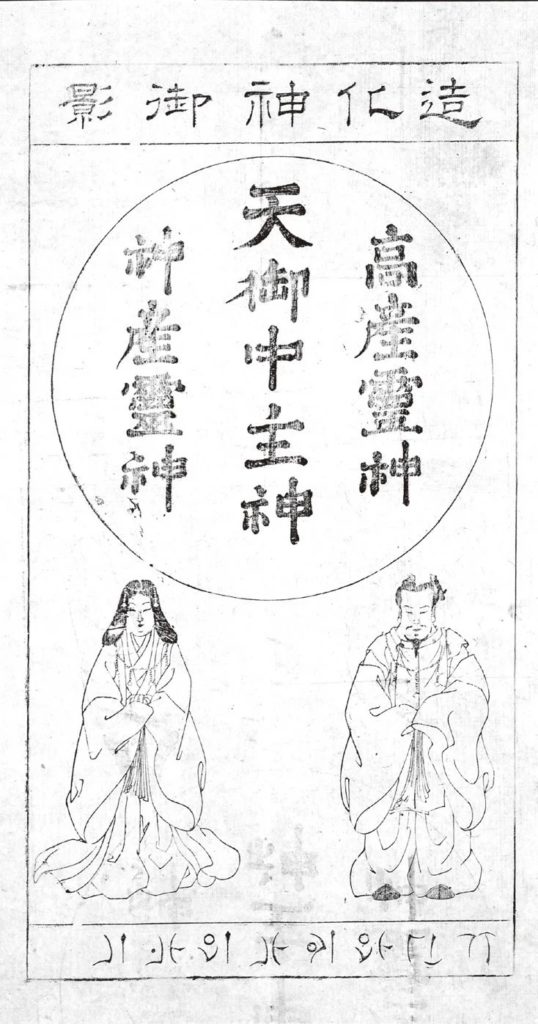 造化神御影
高産靈神
天御中主神
神産靈神